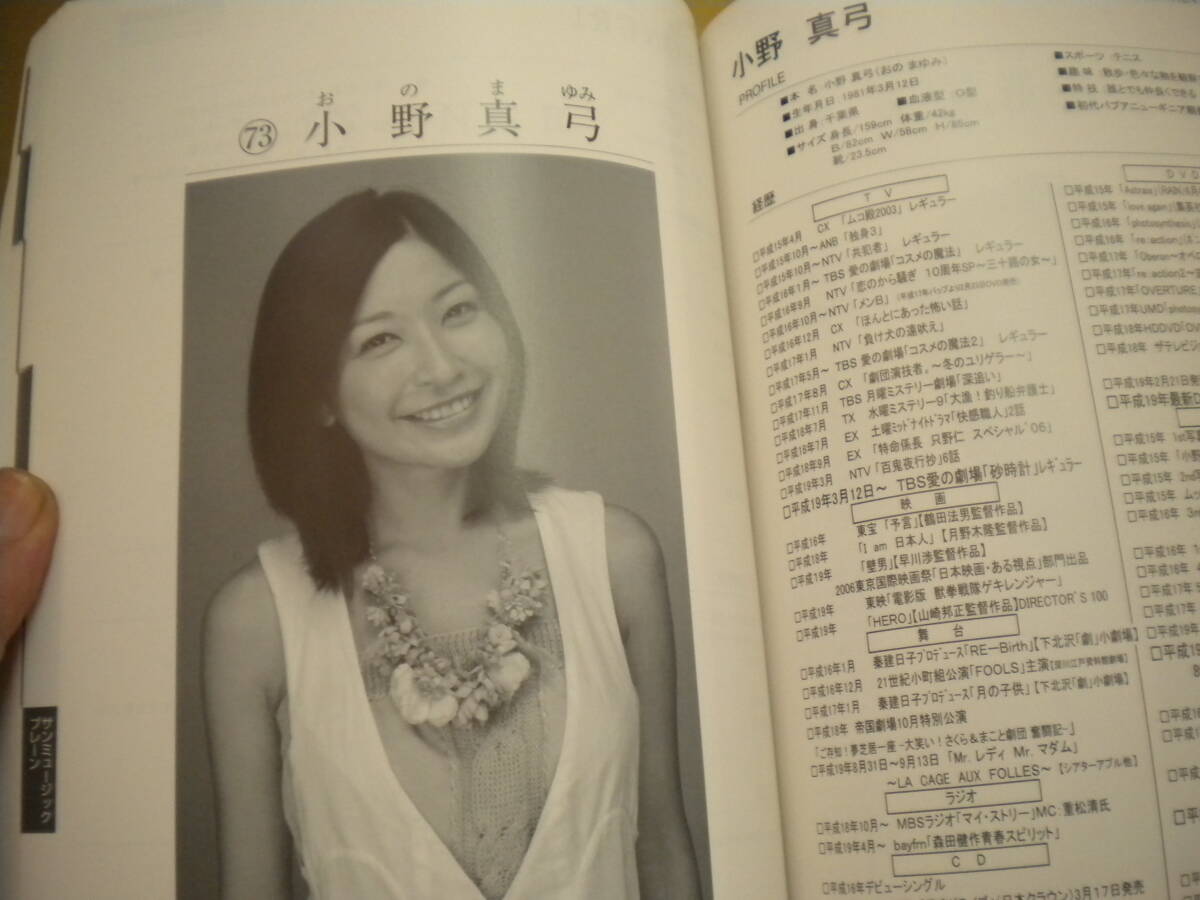 お の ま ゆみ
73 小 野 真 弓
サンミュージック
ブレーン
小野 真弓
PROFILE
■本 名 小野 真弓(おの まゆみ)
■生年月日 1981年3月12日
■血液型 O型
■出 身 千葉県
■サイズ 身長/159cm 体重/42kg
B/82cm W/58cm H/85cm
靴/23.5cm
■スポーツ テニス
■趣 味 散歩・色々な物を観察
■特 技 誰とでも仲良くできる
■初代パプアニューギニア親
経歴
TV
□平成15年4月 CX 「ムコ殿2003」 レギュラー
□平成15年10月~ANB「独身3」
□平成15年10月~NTV「共犯者」 レギュラー
□平成16年1月~ TBS 愛の劇場「コスメの魔法」 レギュラー
□平成16年9月 NTV「恋のから騒ぎ 10周年SP~三十路の女~」
□平成16年10月~NTV「メンB」
□平成16年12月 CX 「ほんとにあった怖い話」
□平成17年1月 NTV「負け犬の遠吠え」
□平成17年5月~ TBS 愛の劇場「コスメの魔法2」 レギュラー
□平成17年8月 CX 「劇団演技者。~冬のユリゲラー~」
□平成17年11月 TBS 月曜ミステリー劇場「深追い」
□平成18年7月 TX 水曜ミステリー9「大漁!釣り船弁護士」
□平成18年7月 EX 土曜ミッドナイトドラマ「快感職人」2話
□平成18年9月 EX 「特命係長 只野仁 スペシャル'06」
□平成19年3月 NTV「百鬼夜行抄」6話
□平成19年3月12日~ TBS愛の劇場「砂時計」レギュラー
映 画
□平成16年 東宝 「予言」【鶴田法男監督作品】
□平成18年 「I am 日本人」【月野木隆監督作品】
□平成19年 「壁男」【早川渉監督作品】
2006東京国際映画祭「日本映画・ある視点」部門出品
□平成19年 東映「電影版 獣拳戦隊ゲキレンジャー」
□平成19年 「HERO」【山崎邦正監督作品】DIRECTOR'S 100
舞 台
□平成16年1月 秦建日子プロデュース「RE―Birth」【下北沢「劇」小劇場】
□平成16年12月 21世紀小町組公演「FOOLS」主演
□平成17年1月 秦建日子プロデュース「月の子供」【下北沢「劇」小劇場】
□平成18年 帝国劇場10月特別公演
「ご存知!夢芝居一座-大笑い!さくら&まこと劇団 奮闘記-」
□平成19年8月31日~9月13日 「Mr. レディ Mr. マダム」
~LA CAGE AUX FOLLES~ 【シアターアプル他】
ラジオ
□平成18年10月~ MBSラジオ「マイ・ストリー」MC:重松清氏
□平成19年4月~ bayfm「森田健作青春スピリット」
CD
□平成16年デビューシングル
(日本クラウン)3月17日発売
DVD
□平成15年 「love again」
□平成16年 「photosynthesis」
□平成16年 「re:action」
□平成17年 「Oberon~オベロ
□平成17年 「re:action2~
□平成17年 「OVERTURE
□平成17年UMD「photos
□平成18年HDDVD「OV
□平成18年 ザテレビジ
□平成19年2月21日発
□平成19年最新D
□平成15年 1st写真
□平成15年 「小野
□平成15年 2nd
□平成15年 ムッ
□平成16年 3rd
□平成16年
□平成16年
□平成17年
□平成17年
□平成19年